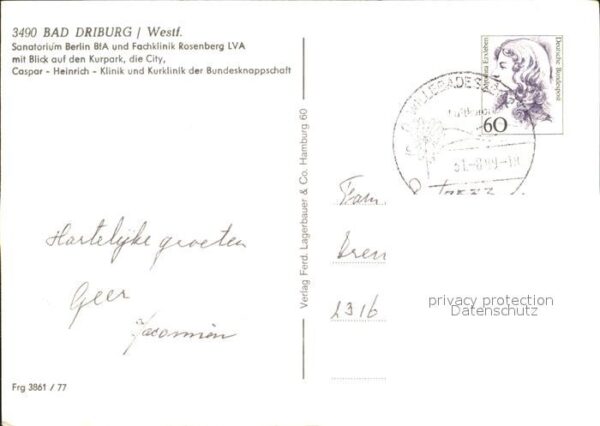 3490 BAD DRIBURG / Westf.
Sanatorium Berlin BfA und Fachklinik Rosenberg LVA
mit Blick auf den Kurpark, die City,
Caspar - Heinrich - Klinik und Kurklinik der Bundesknappschaft
Deutsche Bundespost
60
WILLEBADESSEN
Verlag Ferd. Lagerbauer & Co. Hamburg 60
Fam
Hartelijke groeten
Geer
privacy protection
Datenschutz
Frg 3861 / 77